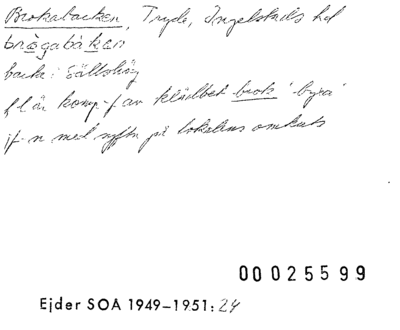 Brokabacken, Tryde, Ingelstads hd
brågabákan
backe i Sältshög
f l är komp-f av klädbet brok 'byxa'
jf-n med syftn på lokalens
00025599
Ejder SOA 1949-1951:24